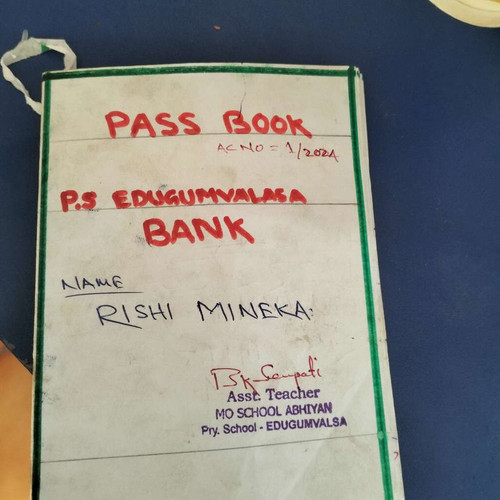 PASS BOOK
AC NO = 1/2024
P.S EDUGUMVALASA
BANK
NAME
RISHI MINEKA
Asst. Teacher
MO SCHOOL ABHIYAN
Pry. School - EDUGUMVALSA